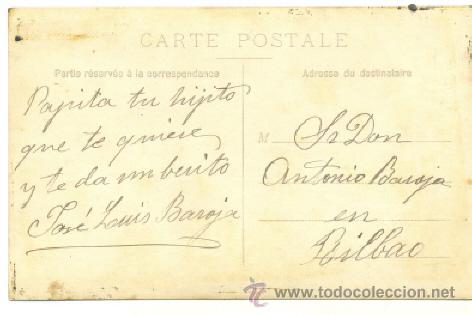 CARTE POSTALE
Partie réservée à la correspondance
Adresse du destinataire
Papita tu hijito
que te quiere
y te da un besito
José Luis Baroja
M Sr Don
Antonio Baroja
en
Bilbao
www.todocoleccion.net